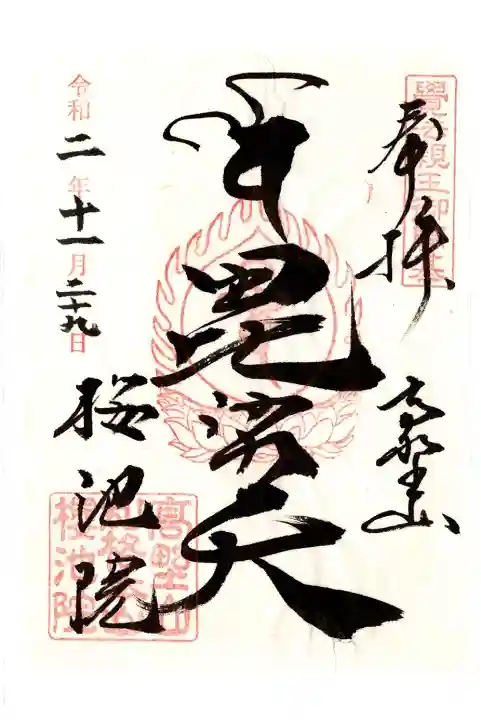 奉拝
高野山
毘沙門天
令和二年十一月二十九日
桜池院
覺法親王御
高野山
櫻池院